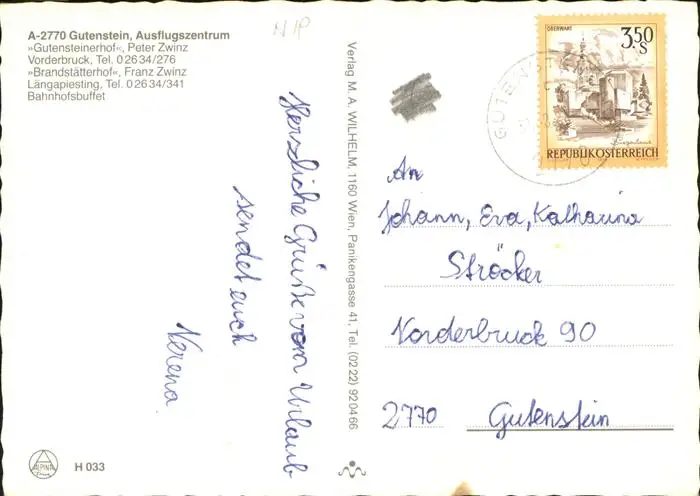 A-2770 Gutenstein, Ausflugszentrum
»Gutensteinerhof«, Peter Zwinz
Vorderbruck, Tel. 0 26 34/276
»Brandstätterhof«, Franz Zwinz
Längapiesting, Tel. 0 26 34/341
Bahnhofsbuffet
Herzliche Grüße vom Urlaub
sendet euch
Verena
ALPINA
H 033
Verlag M. A. WILHELM, 1160 Wien, Panikengasse 41, Tel. (02 22) 92 04 66
OBERWART
3,50
S
REPUBLIK ÖSTERREICH
An
Johann, Eva, Katharina
Ströcker
Vorderbruck 90
2770 Gutenstein